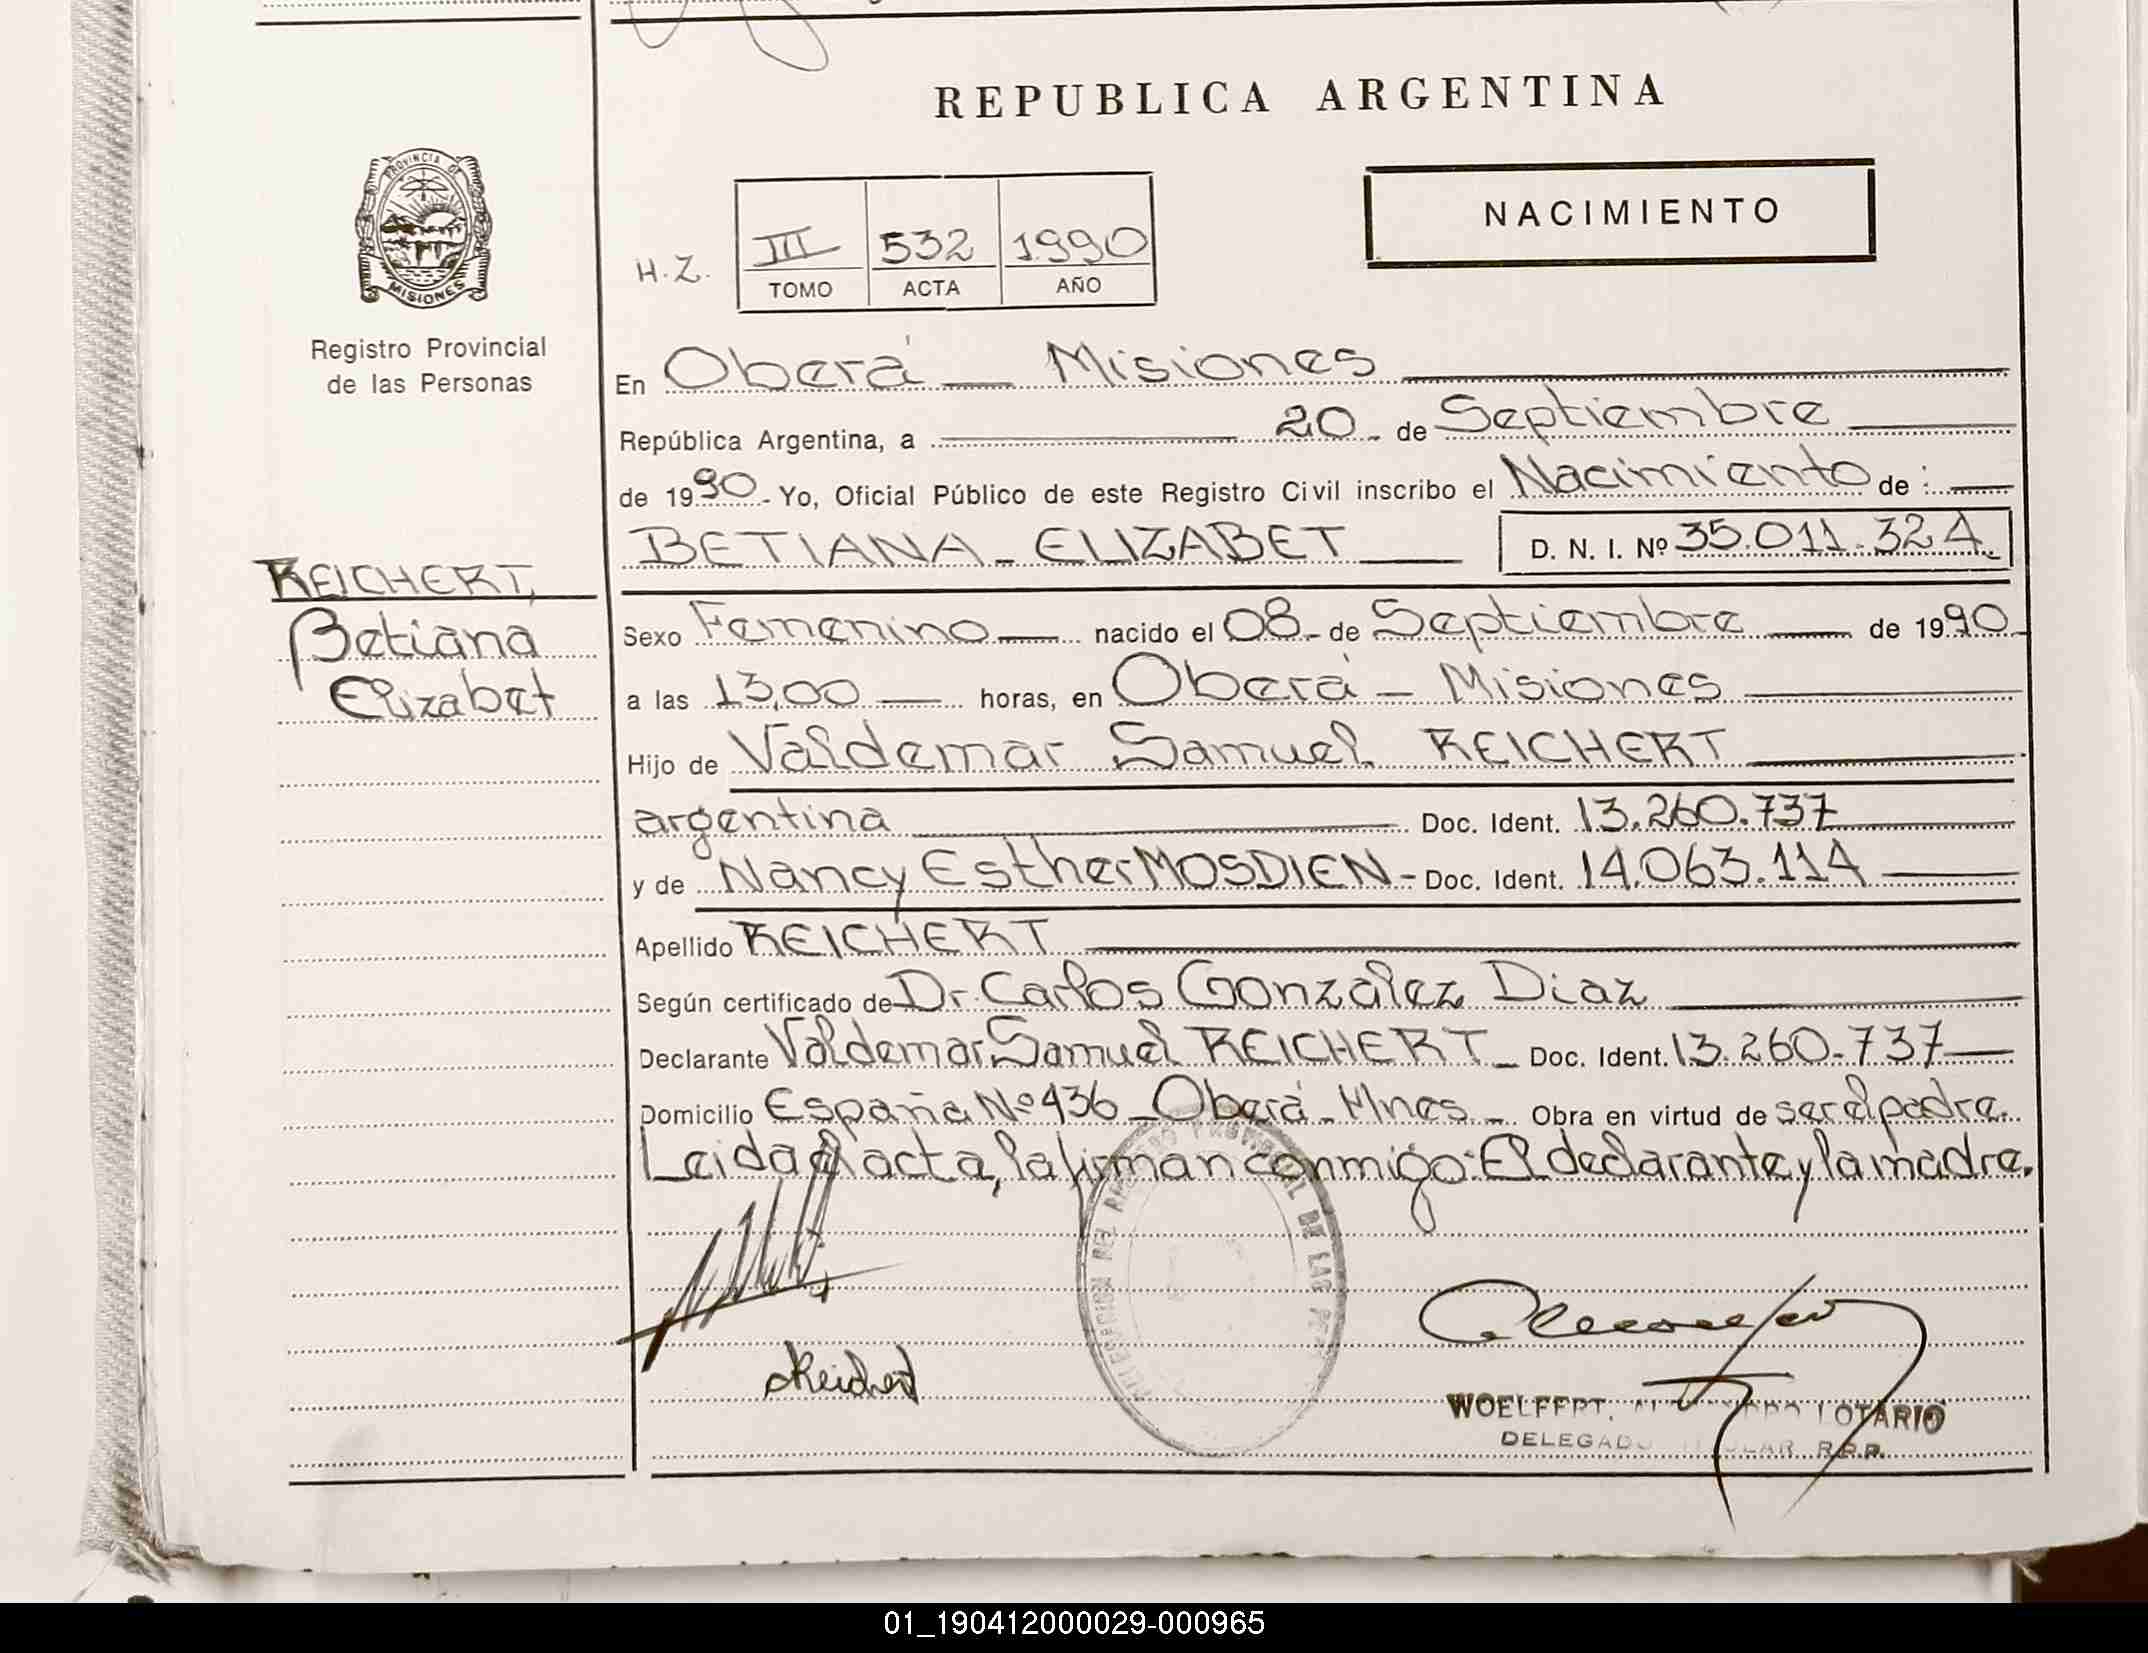 REPUBLICA ARGENTINA
PROVINCIA DE
MISIONES
Registro Provincial
de las Personas
NACIMIENTO
H.Z.
III 532 1990
TOMO ACTA AÑO
En Oberá - Misiones
República Argentina, a 20 - de Septiembre
de 1990 - Yo, Oficial Público de este Registro Civil inscribo el Nacimiento de :
BETIANA - ELIZABET D. N. I. Nº 35.011.324
REICHERT,
Betiana
Elizabet
Sexo Femenino nacido el 08 - de Septiembre de 1990
a las 13,00 horas, en Oberá - Misiones
Hijo de Valdemar Samuel REICHERT
argentina Doc. Ident. 13.260.737
y de Nancy Esther MOSDIEN - Doc. Ident. 14.063.114
Apellido REICHERT
Según certificado de Dr. Carlos González Diaz
Declarante Valdemar Samuel REICHERT - Doc. Ident. 13.260.737
Domicilio España Nº 436 - Oberá - Mnes. - Obra en virtud de ser el padre.
Leida el acta, la firman conmigo: El declarante y la madre.
REGISTRO PROVINCIAL DE LAS
Reichert
WOELFFERT, LOTARIO
DELEGADO TITULAR R.P.P.
01_190412000029-000965